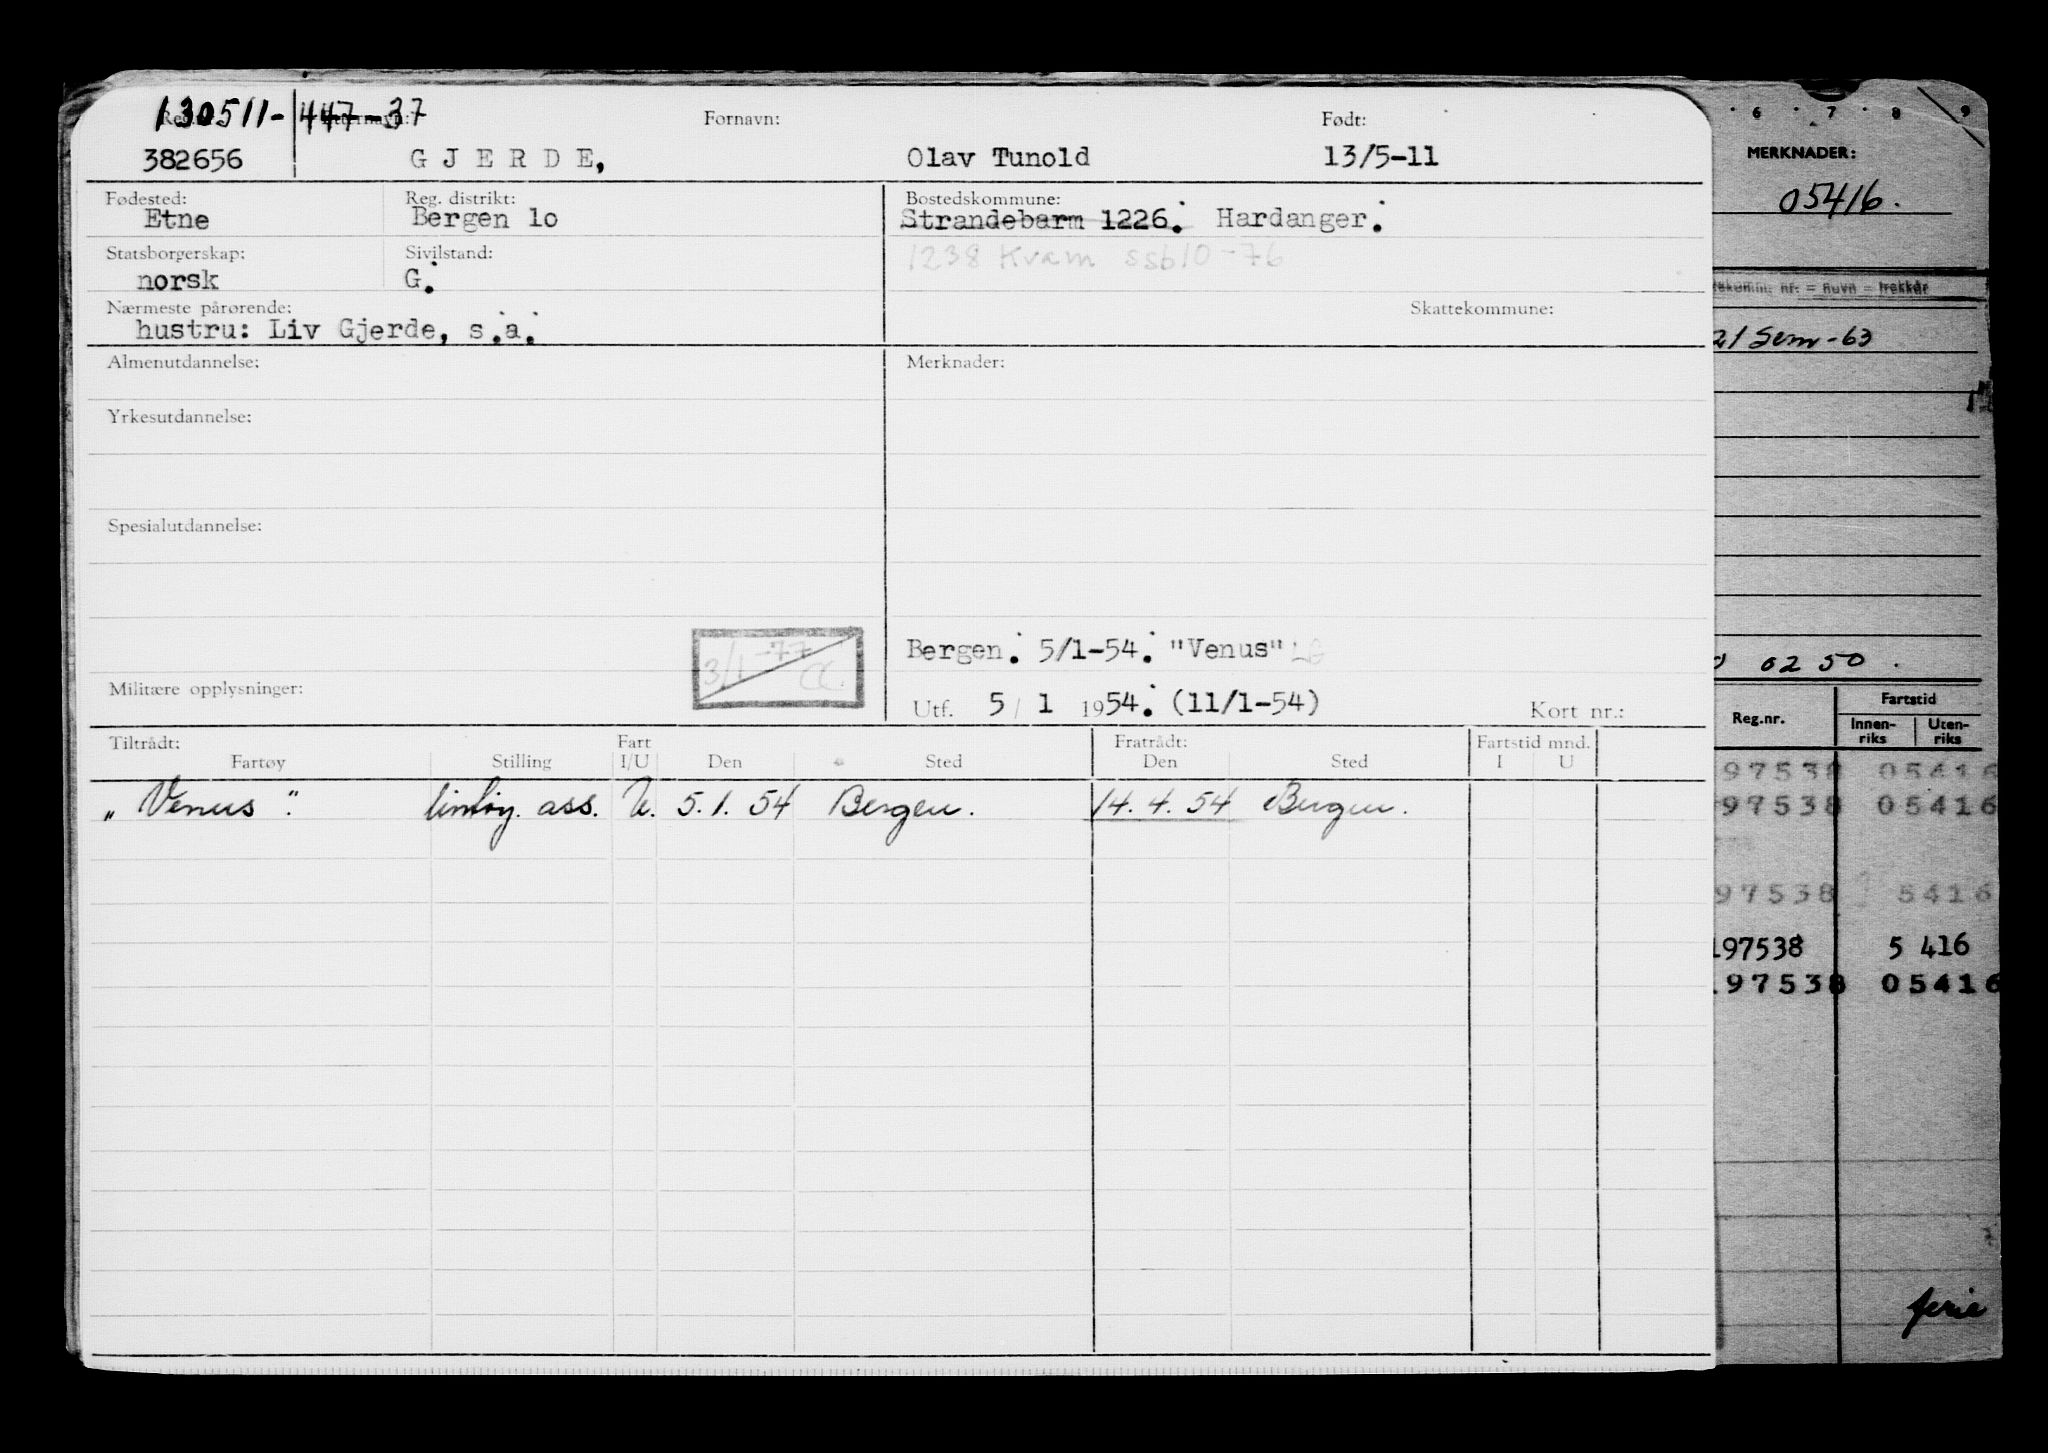 130511-447-37
Reg.nr. Etternavn: Fornavn: Født:
382656 GJERDE, Olav Tunold 13/5-11
Fødested: Reg. distrikt: Bostedskommune:
Etne Bergen 1o Strandebarm 1226. Hardanger.
Statsborgerskap: Sivilstand: 1238 Kvam ssb10-76
norsk G.
Nærmeste pårørende: Skattekommune:
hustru: Liv Gjerde, s.a.
Almenutdannelse: Merknader:
Yrkesutdannelse:
Spesialutdannelse:
3/1-77 CC
Bergen. 5/1-54. "Venus" LG
Militære opplysninger: Utf. 5/1 1954. (11/1-54) Kort nr.:
Tiltrådt: Fart Fratrådt: Fartstid mnd.
Fartøy Stilling I/U Den Sted Den Sted I U
„Venus". ass. U. 5.1.54 Bergen. 14.4.54 Bergen.
6 7 8 9
MERKNADER:
05416.
nr. = navn = trekkår
21 Sem-63
0250.
Reg.nr. Fartstid
Innen-riks Uten-riks
97538 05416
97538 05416
97538 5416
197538 5 416
197538 05416
ferie